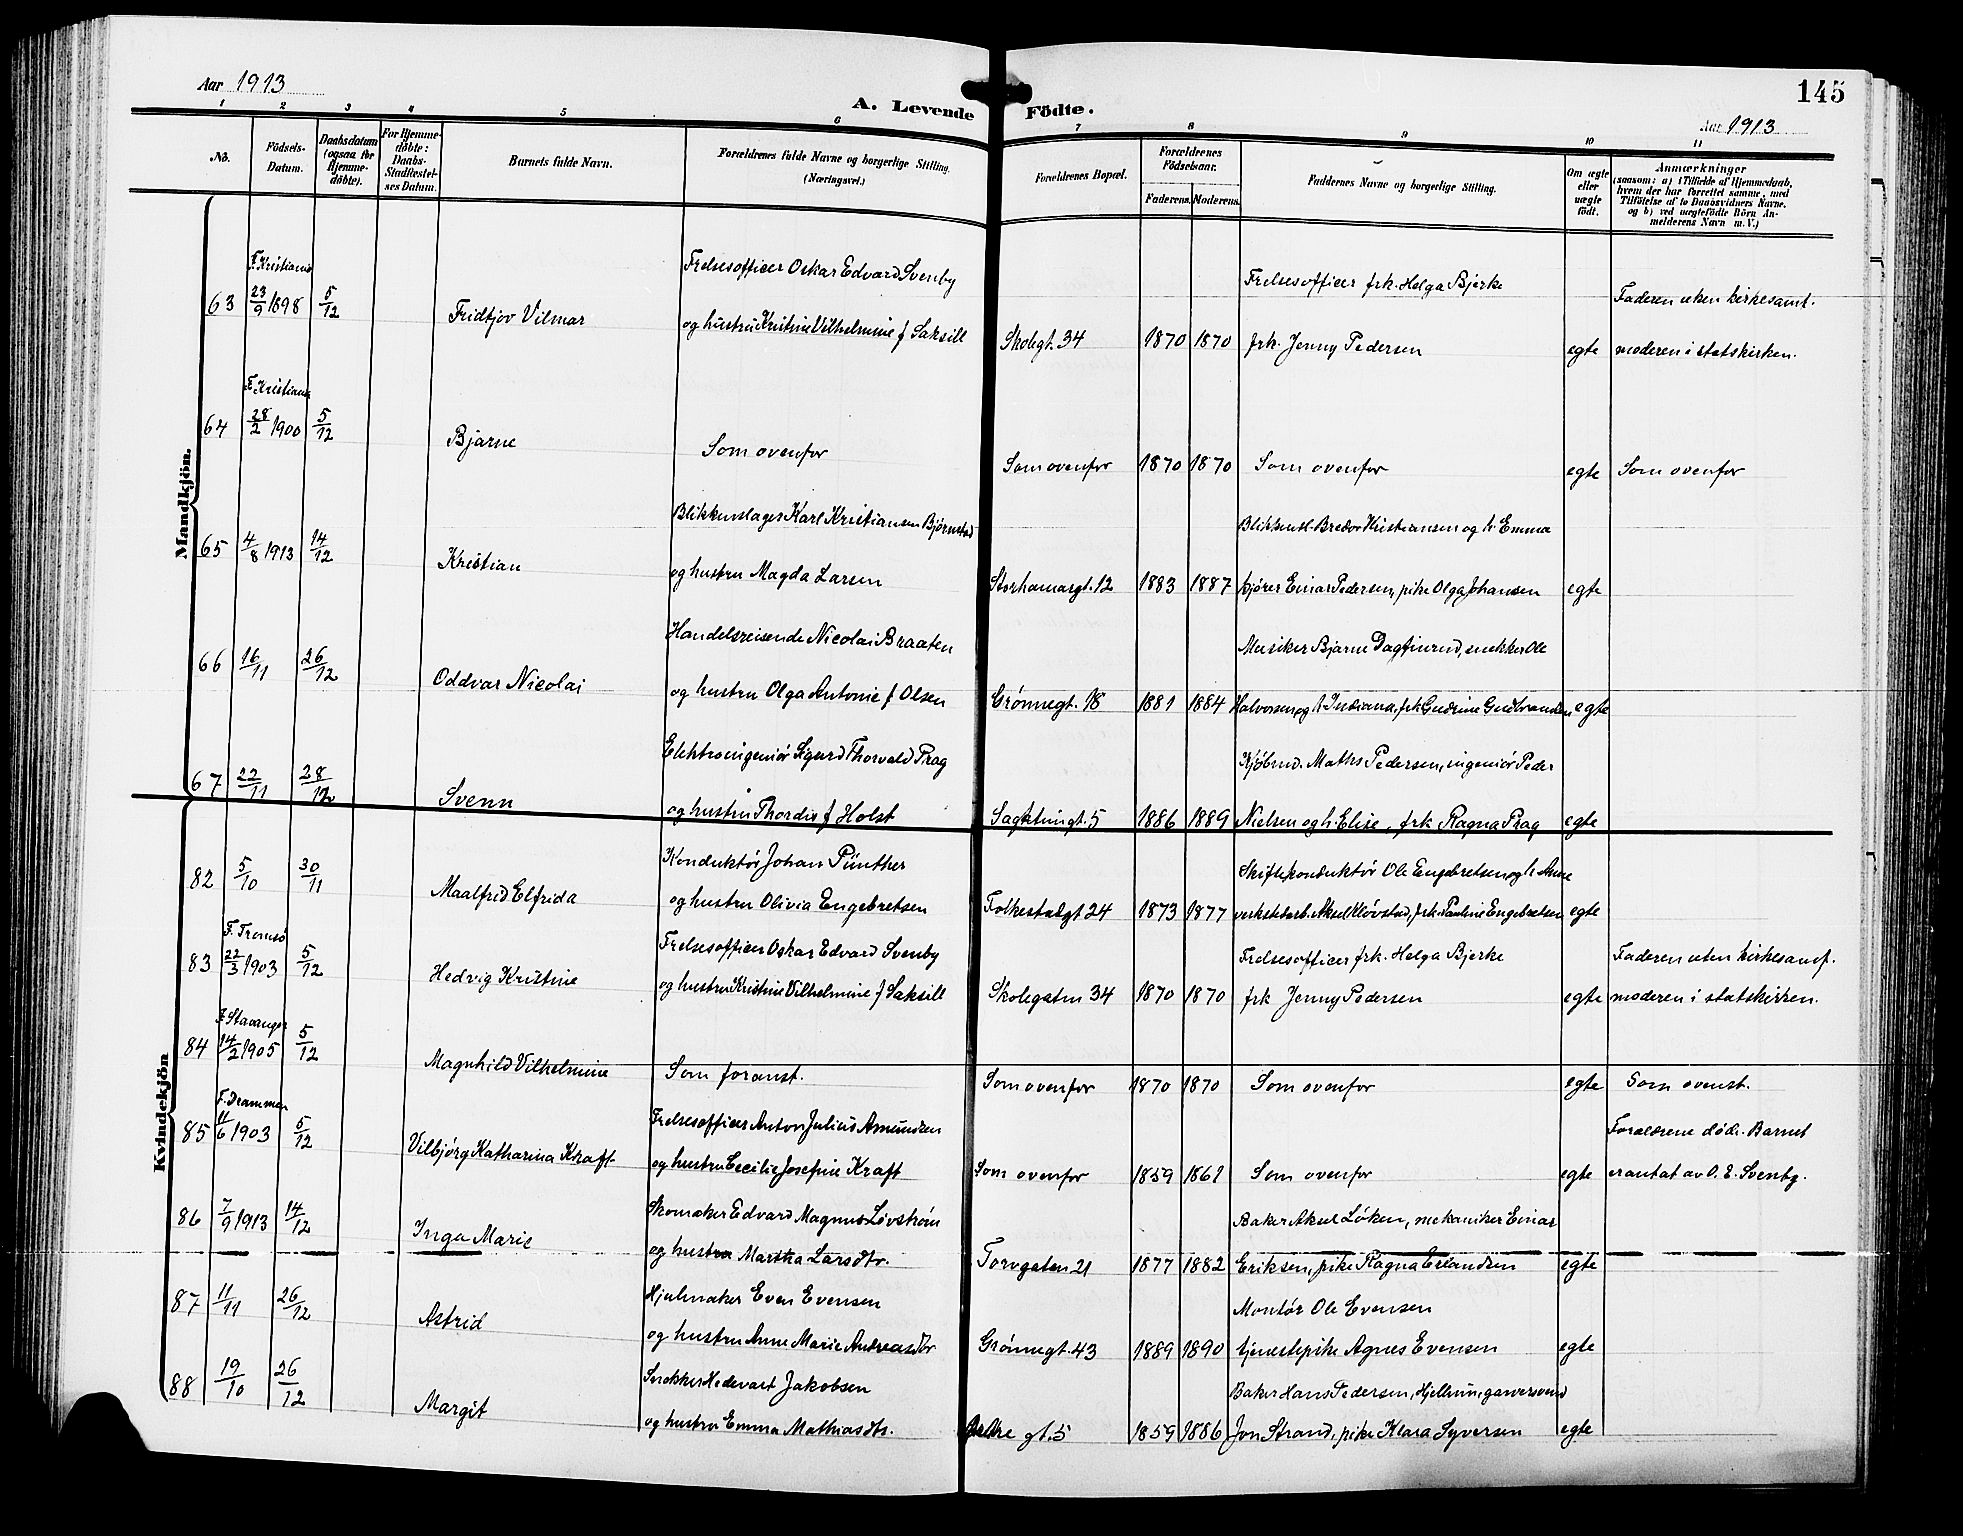 Aar 1913
A. Levende Födte.
145
Aar 1913
1 2 3 4 5 6 7 8 9 10 11
No. Födsels-Datum. Daabsdatum (ogsaa for Hjemme-döbte). For Hjemme-döbte: Daabs-Stadfæstel-ses Datum. Barnets fulde Navn. Forældrenes fulde Navne og borgerlige Stilling. (Næringsvei.) Forældrenes Bopæl. Forældrenes Födselsaar. Faderens. Moderens. Faddernes Navne og borgerlige Stilling. Om ægte eller uægte födt. Anmærkninger (saasom: a) i Tilfælde af Hjemmedaab, hvem der har forrettet samme, med Tilföielse af to Daabsvidners Navne, og b) ved uægtefödte Börn An-melderens Navn m. V.)
Mandkjön.
F. Kristiania Frelsesofficer Oskar Edvard Svenby Frelsesofficer frk. Helga Bjerke Faderen uten kirkesamf.
63 23/9 1898 5/12 Fridtjov Vilmar og hustru Kristine Vilhelmine f Saksill Skolegt. 34 1870 1870 frk. Jenny Pedersen egte moderen i statskirken.
F. Kristiania
64 28/2 1900 5/12 Bjarne Som ovenfor Som ovenfor 1870 1870 Som ovenfor egte Som ovenfor
Blikkenslager Karl Kristiansen Bjørnstad Blikkensl. Bredor Kristiansen og h. Emma
65 4/8 1913 14/12 Kristian og hustru Magda Larsen Storhamargt. 12 1883 1887 kjører Einar Pedersen, pike Olga Johansen egte
Handelsreisende Nicolai Braaten Musiker Bjarne Dagfinrud, snekker Ole
66 16/11 26/12 Oddvar Nicolai og hustru Olga Antonie f Olsen Grønnegt. 18 1881 1884 Halvorsen og h. Indiana, frk Gudrine Gudbrandsen egte
Elektroingeniør Sigurd Thorvald Prag Kjøbmd. Maths Pedersen, ingeniør Peder
67 22/11 28/12 Svenn og hustru Thordis f Holst Sagatungt. 5 1886 1889 Nielsen og h. Elise, frk Ragna Prag egte
Kvindekjön
Konduktør Johan Pünther Skiftekonduktør Ole Engebretsen og h. Anne
82 5/10 30/11 Maalfrid Elfrida og hustru Olivia Engebretsen Folkestadgt 24 1873 1877 verkstedarb. Aksel Kløvstad, frk. Pauline Engebretsen egte
F. Tromsø Frelsesofficer Oskar Edvard Svenby Frelsesofficer frk. Helga Bjerke Faderen uten kirkesamf.
83 22/3 1903 5/12 Hedvig Kristine og hustru Kristine Vilhelmine f Saksill Skolegaten 34 1870 1870 frk Jenny Pedersen egte moderen i statskirken.
F. Stavanger
84 14/2 1905 5/12 Magnhild Vilhelmine Som foranst. Som ovenfor 1870 1870 Som ovenfor egte Som ovenst.
F. Drammen Frelsesofficer Anton Julius Amundsen Forældrene døde. Barnet
85 11/6 1903 5/12 Vilbjørg Katharina Kraft og hustru Cecilie Josefine Kraft Som ovenfor 1859 1861 Som ovenfor egte er antat av O. E. Svenby.
Skomaker Edvard Magnus Løvstrøm Baker Aksel Løken, mekaniker Einar
86 7/9 1913 14/12 Inga Marie og hustru Martha Larsdtr. Torvgaten 21 1877 1882 Eriksen, pike Ragna Erlandsen egte
Hjulmaker Even Evensen Montør Ole Evensen
87 11/11 26/12 Astrid og hustru Anne Marie Andreasdtr Grønnegt. 43 1889 1890 tjenestepike Agnes Evensen egte
Snekker Hedevart Jakobsen Baker Hans Pedersen, Hjellum, garversvend
88 19/10 26/12 Margit og hustru Emma Mathiasdtr. gt. 5 1859 1886 Jon Strand, pike Klara Syversen egte